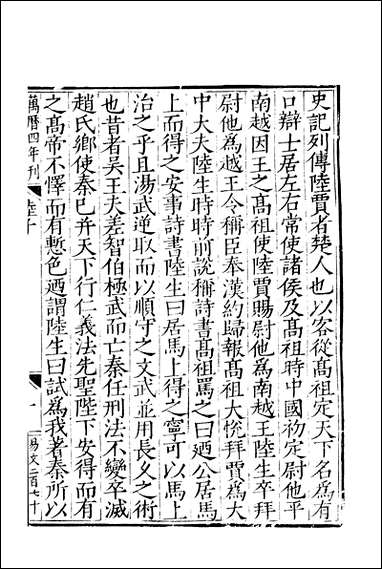 史記列傳陸賈者楚人也以客從髙祖定天下名為有
口辯士居左右常使諸侯及髙祖時中國初定尉他平
南越因王之髙祖使陸賈賜尉他為南越王陸生卒拜
尉他為越王令稱臣奉漢約歸報髙祖大悅拜賈為大
中大夫陸生時時前説稱詩書髙祖罵之曰廼公居馬
上而得之安事詩書陸生曰居馬上得之寧可以馬上
治之乎且湯武逆取而以順守之文武並用長乆之術
也昔者吴王夫差智伯極武而亡秦任刑法不變卒滅
趙氏鄉使秦已并天下行仁義法先聖陛下安得而有
之髙帝不懌而有慙色廼謂陸生曰試為我著秦所以
萬曆四年刊
一
易文二百七十